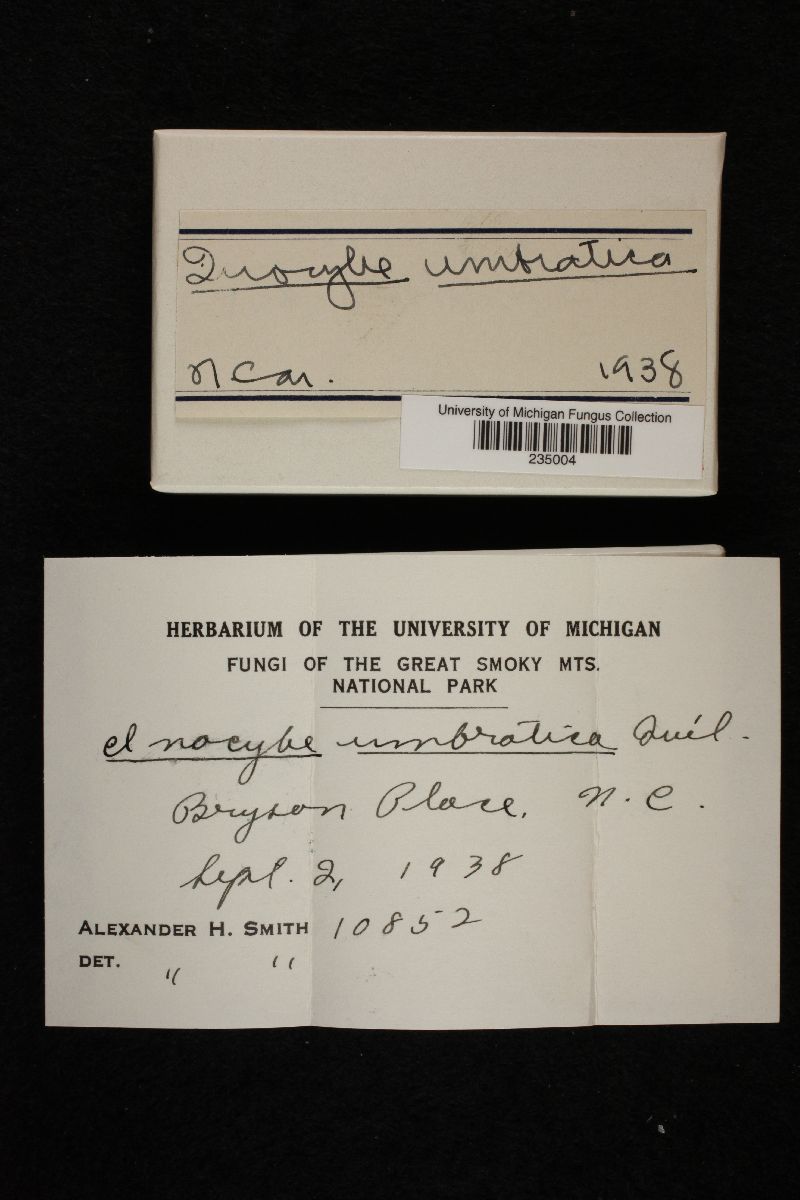 Inocybe umbratica
N Car. 1938
University of Michigan Fungus Collection
235004
HERBARIUM OF THE UNIVERSITY OF MICHIGAN
FUNGI OF THE GREAT SMOKY MTS.
NATIONAL PARK
Inocybe umbratica Quél.
Bryson Place, N.C.
Sept. 2, 1938
ALEXANDER H. SMITH 10852
DET. " "